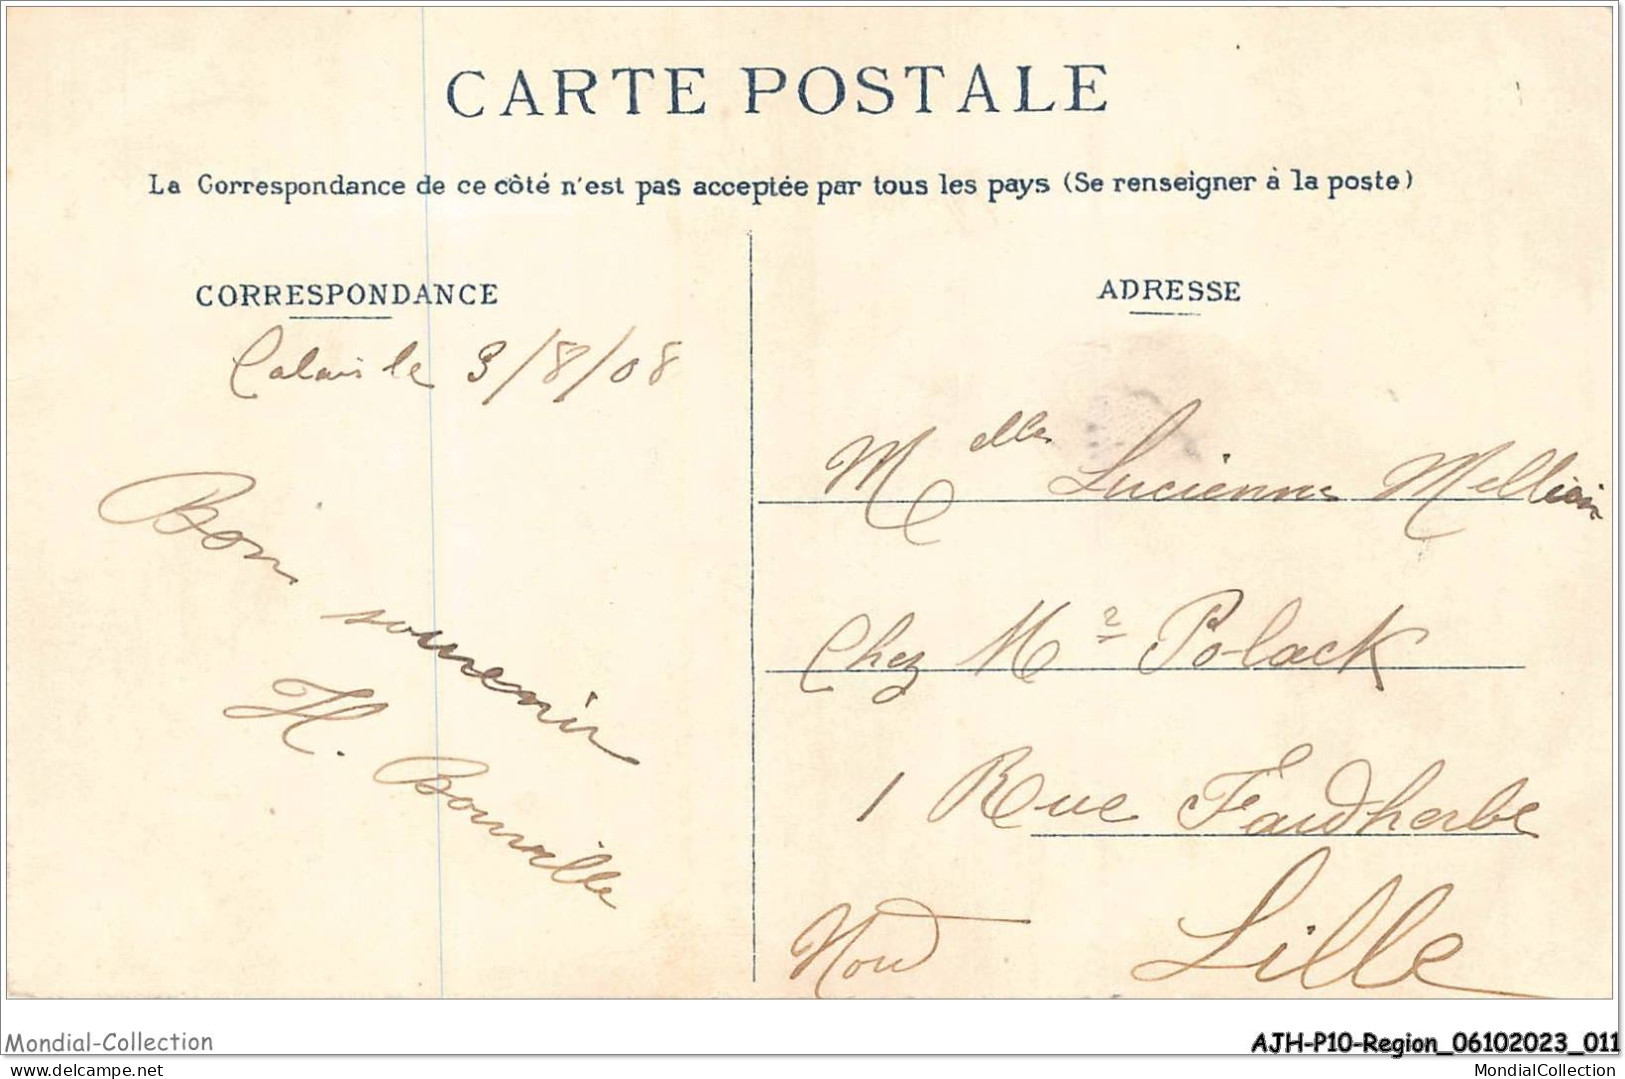 CARTE POSTALE
La Correspondance de ce côté n'est pas acceptée par tous les pays (Se renseigner à la poste)
CORRESPONDANCE
Calais le 3/8/08
Bon souvenir
H. Bonville
ADRESSE
Melle Lucienne
Chez Mr Polack
1 Rue Faidherbe
Nord Lille
Mondial-Collection
AJH-P10-Region_06102023_011
delcampe.net
MondialCollection